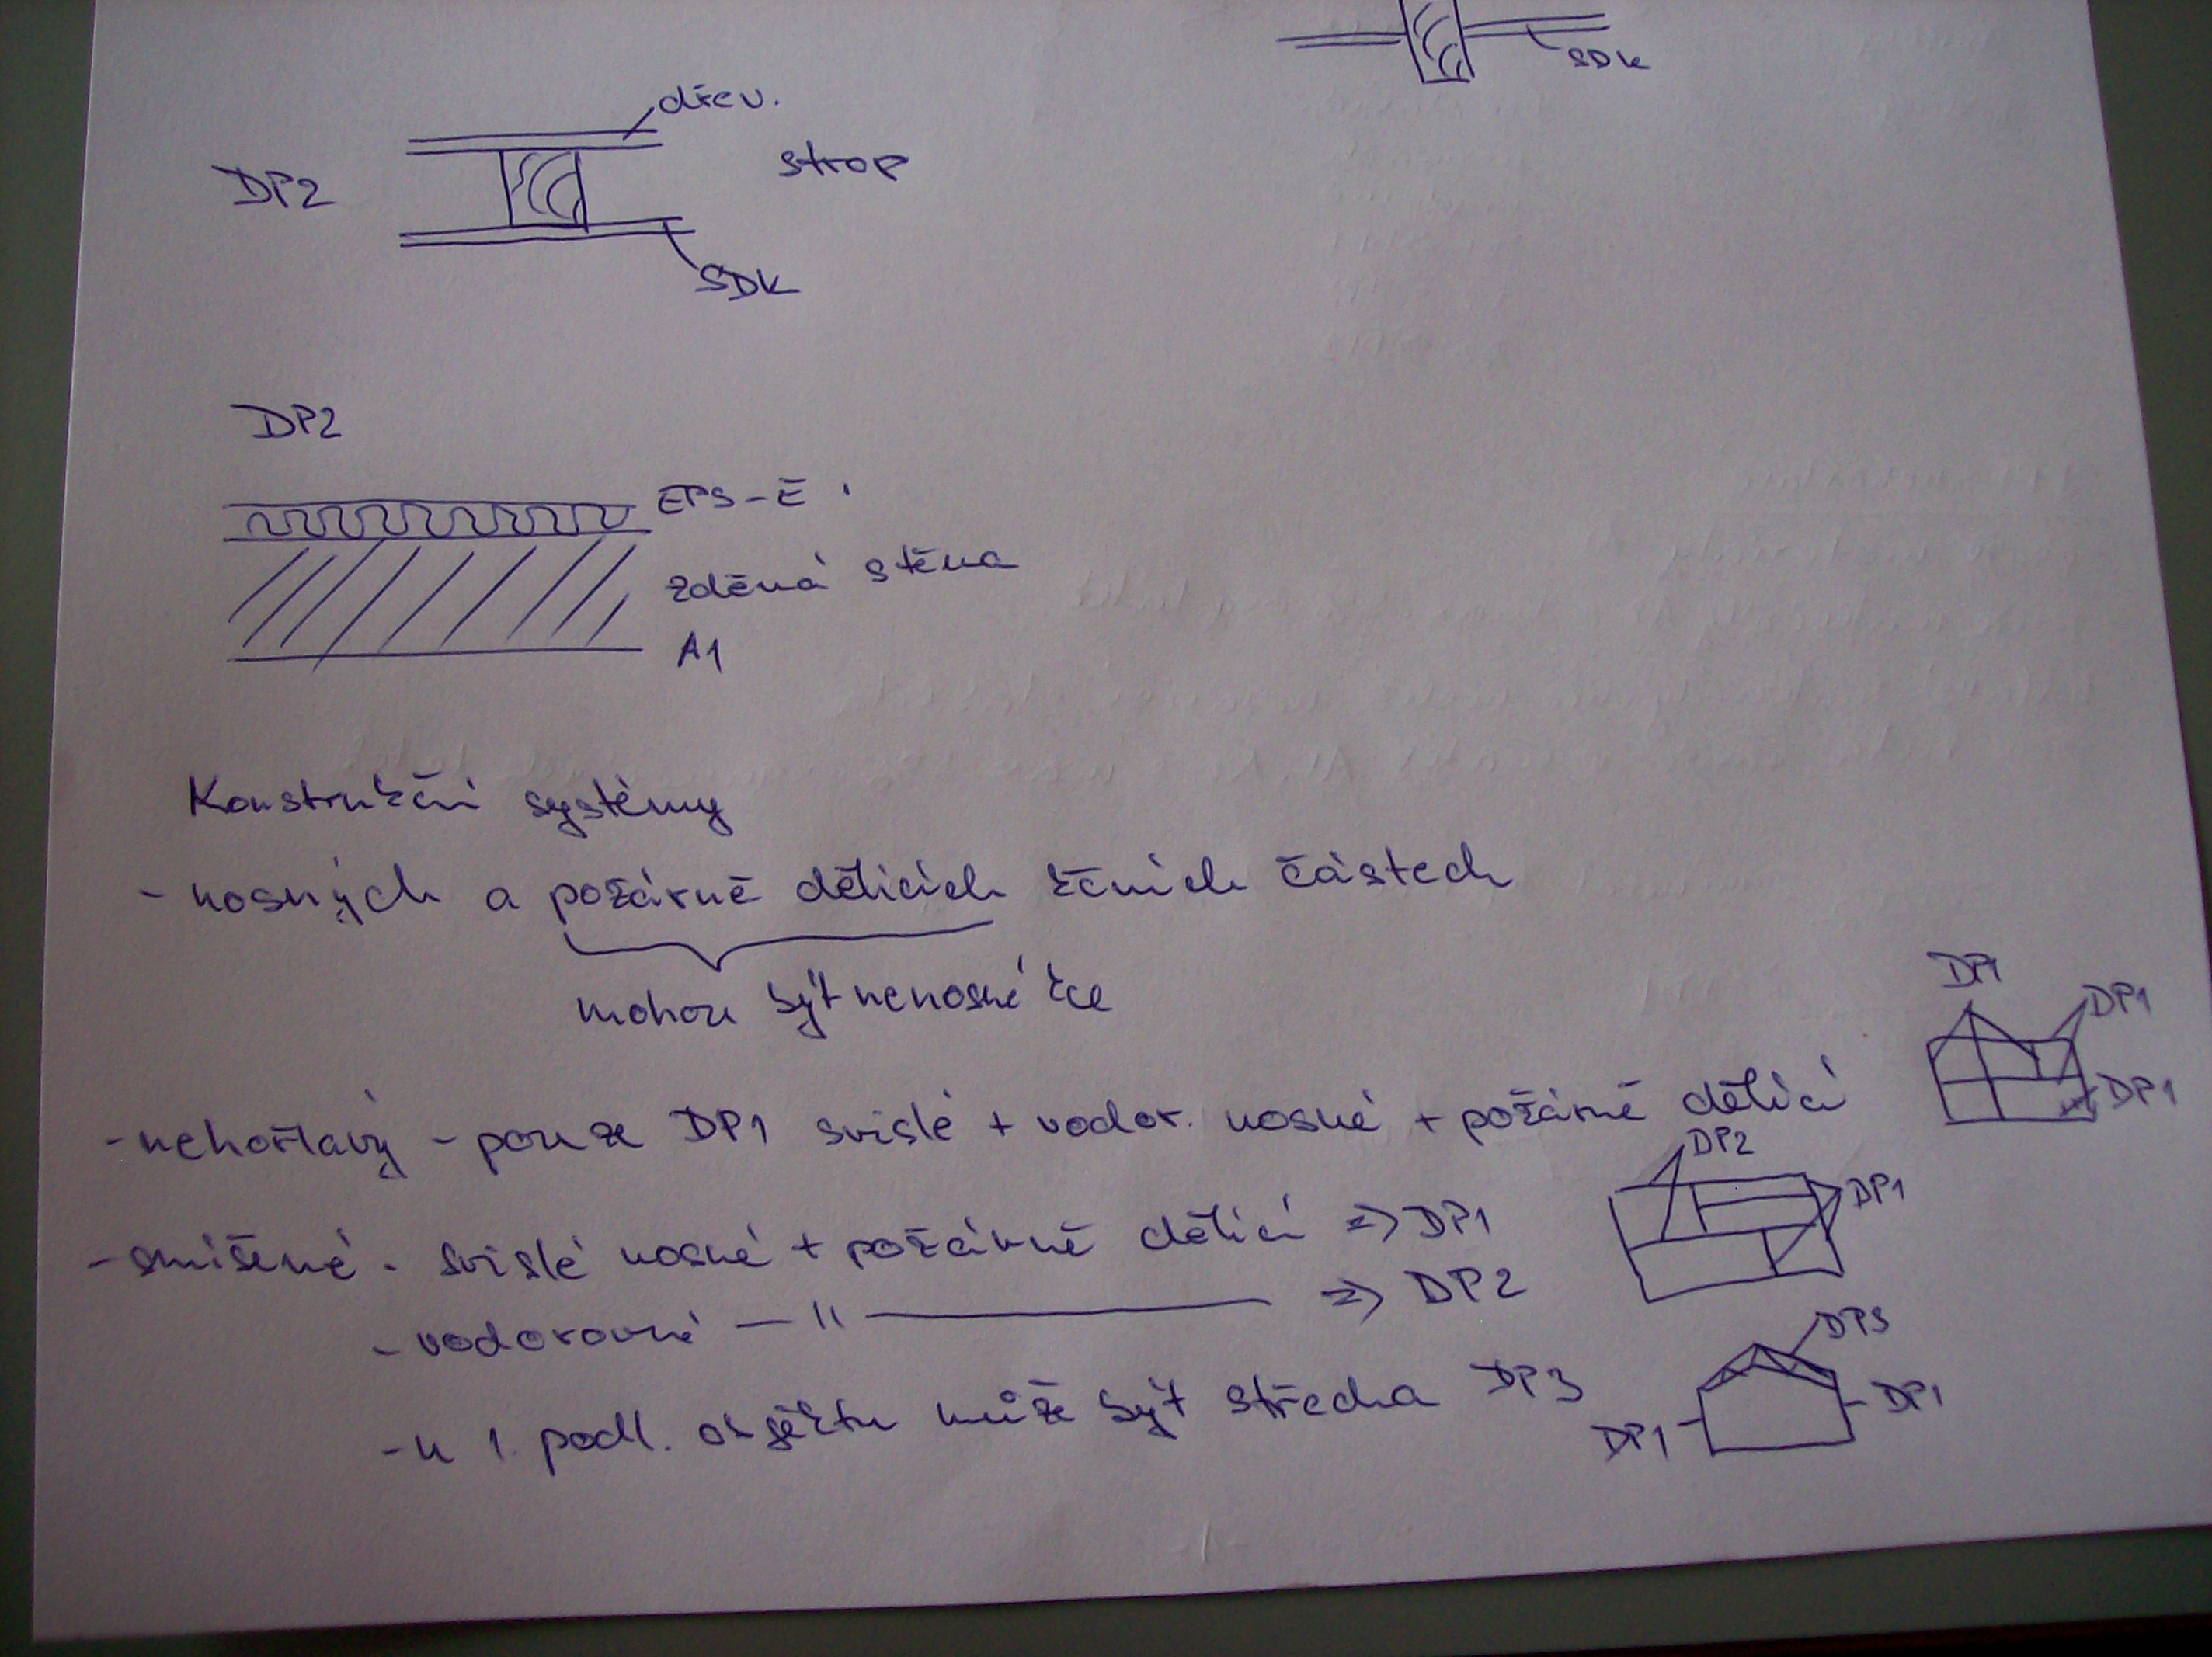 SDK
dřev.
DP2
strop
SDK
DP2
EPS-E
zděná stěna
A1
Konstrukční systémy
- nosných a požárně dělících kčních částech
mohou být nenosné kce
DP1
DP1
DP1
- nehořlavý - pouze DP1 svislé + vodor. nosné + požárně dělící
DP2
DP1
- smíšené - svislé nosné + požárně dělící => DP1
- vodorovné — " — => DP2
DP3
DP1
DP1
- u 1. podl. objektu může být střecha DP3